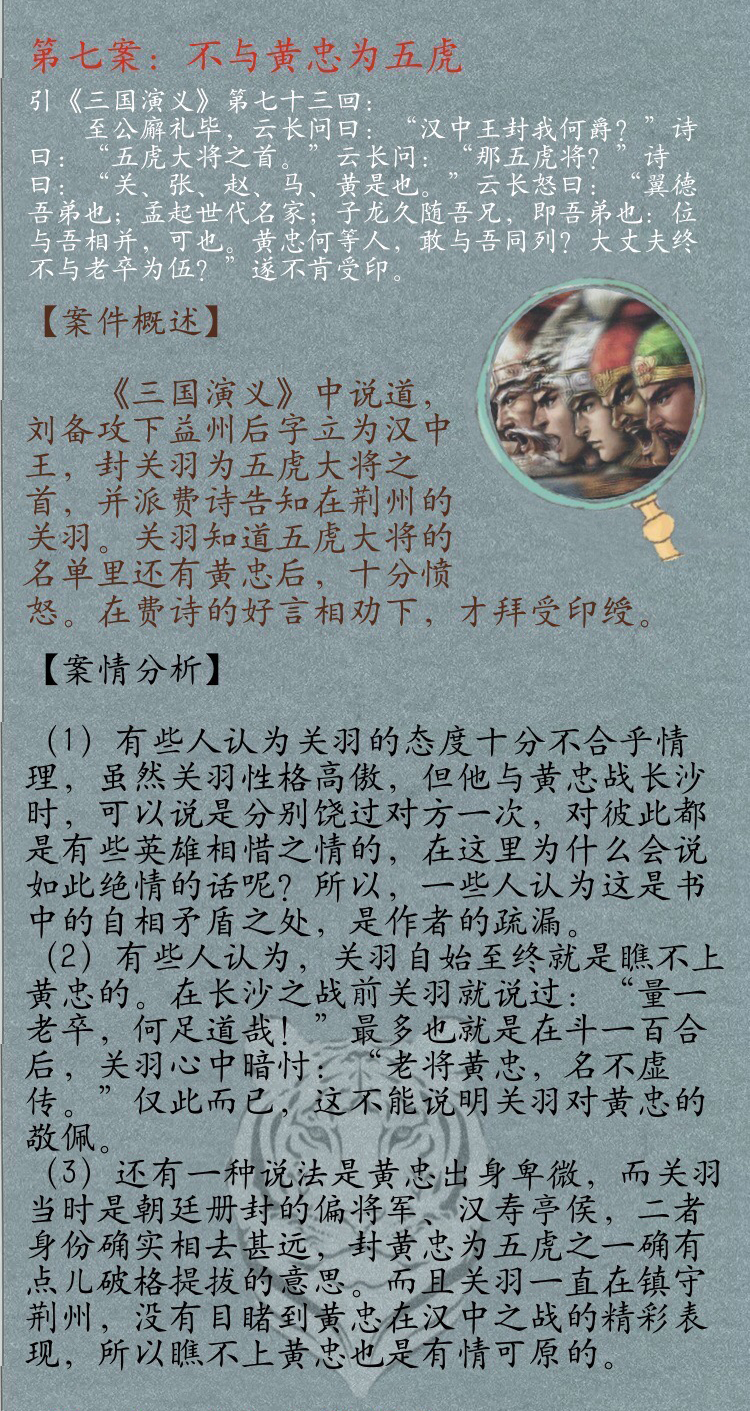 第七案：不与黄忠为五虎
引《三国演义》第七十三回：
至公廨礼毕，云长问曰：“汉中王封我何爵？”诗
曰：“五虎大将之首。”云长问：“那五虎将？”诗
曰：“关、张、赵、马、黄是也。”云长怒曰：“翼德
吾弟也；孟起世代名家；子龙久随吾兄，即吾弟也：位
与吾相并，可也。黄忠何等人，敢与吾同列？大丈夫终
不与老卒为伍？”遂不肯受印。
【案件概述】
《三国演义》中说道，
刘备攻下益州后字立为汉中
王，封关羽为五虎大将之
首，并派费诗告知在荆州的
关羽。关羽知道五虎大将的
名单里还有黄忠后，十分愤
怒。在费诗的好言相劝下，才拜受印绶。
【案情分析】
（1）有些人认为关羽的态度十分不合乎情
理，虽然关羽性格高傲，但他与黄忠战长沙
时，可以说是分别饶过对方一次，对彼此都
是有些英雄相惜之情的，在这里为什么会说
如此绝情的话呢？所以，一些人认为这是书
中的自相矛盾之处，是作者的疏漏。
（2）有些人认为，关羽自始至终就是瞧不上
黄忠的。在长沙之战前关羽就说过：“量一
老卒，何足道哉！”最多也就是在斗一百合
后，关羽心中暗忖：“老将黄忠，名不虚
传。”仅此而已，这不能说明关羽对黄忠的
敬佩。
（3）还有一种说法是黄忠出身卑微，而关羽
当时是朝廷册封的偏将军、汉寿亭侯，二者
身份确实相去甚远，封黄忠为五虎之一确有
点儿破格提拔的意思。而且关羽一直在镇守
荆州，没有目睹到黄忠在汉中之战的精彩表
现，所以瞧不上黄忠也是有情可原的。